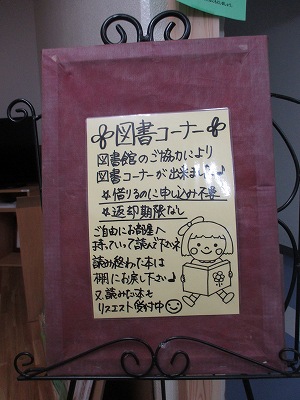 図書コーナー
図書館のご協力により
図書コーナーが出来ました♪
☆借りるのに申し込み不要
☆返却期限なし
ご自由にお部屋へ
持っていって読んで下さい
読み終わった本は
棚にお戻し下さい♪
又、読みたい本も
リクエスト受付中